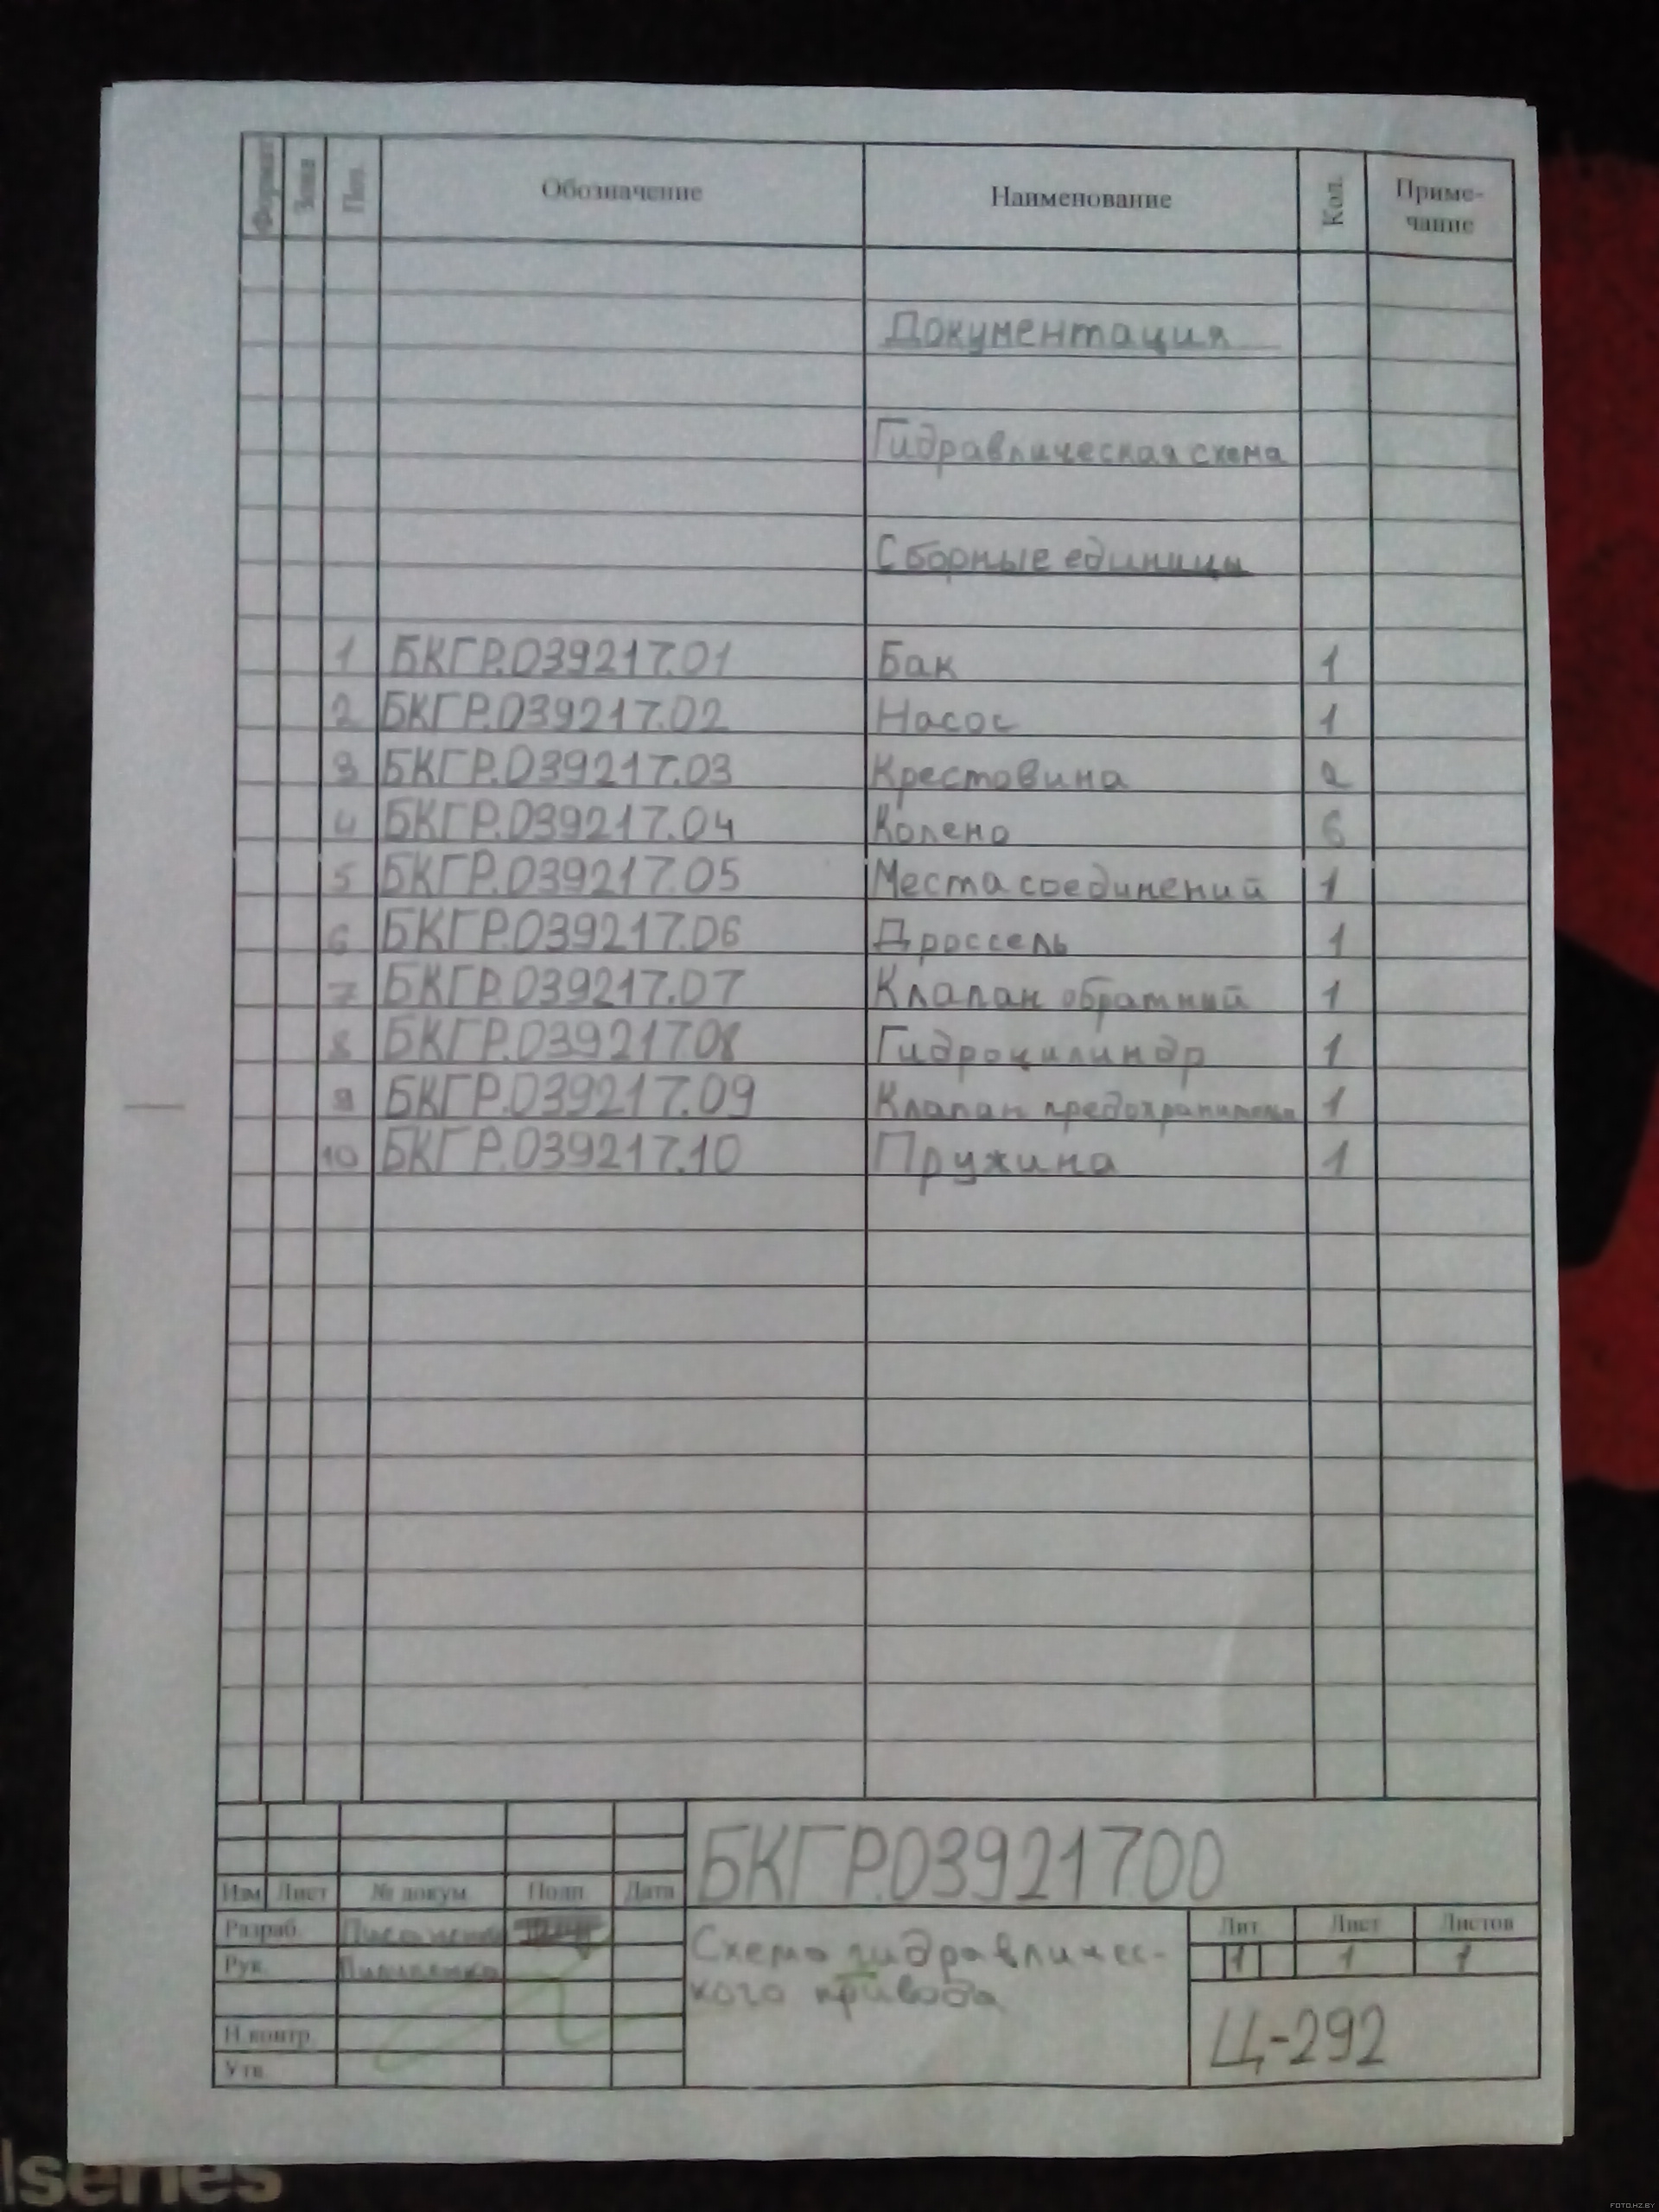 Формат Зона Поз. Обозначение Наименование Кол. Приме-
чание
Документация
Гидравлическая схема
Сборные единицы
1 БКГР.039217.01 Бак 1
2 БКГР.039217.02 Насос 1
3 БКГР.039217.03 Крестовина 2
4 БКГР.039217.04 Колено 6
5 БКГР.039217.05 Места соединений 1
6 БКГР.039217.06 Дроссель 1
7 БКГР.039217.07 Клапан обратный 1
8 БКГР.039217.08 Гидроцилиндр 1
9 БКГР.039217.09 Клапан 1
10 БКГР.039217.10 Пружина 1
БКГР.03921700
Изм Лист № докум. Подп. Дата
Разраб.
Рук.
Н.контр.
Утв.
Схема гидравличес-
кого привода
Лит Лист Листов
1 1 1
Ц-292
series
FOTO.HZ.BY